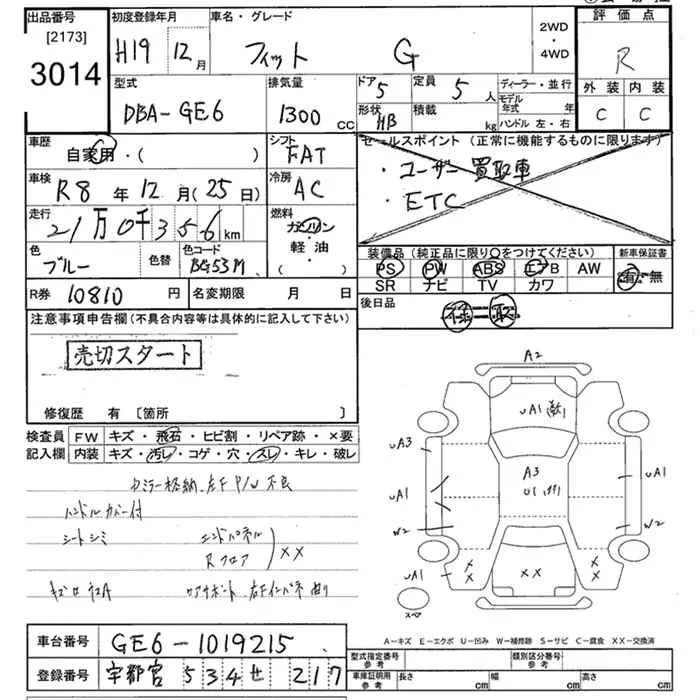 出品番号 初度登録年月 車名・グレード 2WD・4WD 評価点
[2173]
3014 H19 12月 フィット G R
型式 排気量 ドア 5 定員 5人 ディーラー・並行 外装 内装
DBA-GE6 1300CC 形状 HB 積載 kg モデル年式 年 ハンドル 左・右 C C
車歴 自家用・( ) シフト FAT セールスポイント (正常に機能するものに限ります)
車検 R8年12月(25日) 冷房 AC ・ユーザー買取車
・ETC
走行 21万0千356km 燃料 ガソリン・軽油・( )
色 ブルー 色替 色コード BG53M
装備品 (純正品に限り○をつけてください) 新車保証書
PS PW ABS エアB AW 有・無
SR ナビ TV カワ
R券 10810円 名変期限 月 日 後日品 保 取
注意事項申告欄 (不具合内容等は具体的に記入して下さい)
売切スタート
修復歴 有 [箇所 ]
検査員記入欄 FW キズ・飛石・ヒビ割・リペア跡・×要
内装 キズ・汚レ・コゲ・穴・スレ・キレ・破レ
ハンドルカバー付
シートシミ エンドパネル
Rフロア XX
A2
A3
UA3
UA1
UA1
W2
W2
UA1
XX
スペア
A-キズ E-エクボ U-凹み W-補修跡 S-サビ C-腐食 XX-交換済
車台番号 GE6-1019215
登録番号 宇都宮 534 せ 217
型式指定番号 参考 類別区分番号 参考
車庫証明用 参考 長さ cm 幅 cm 高さ cm